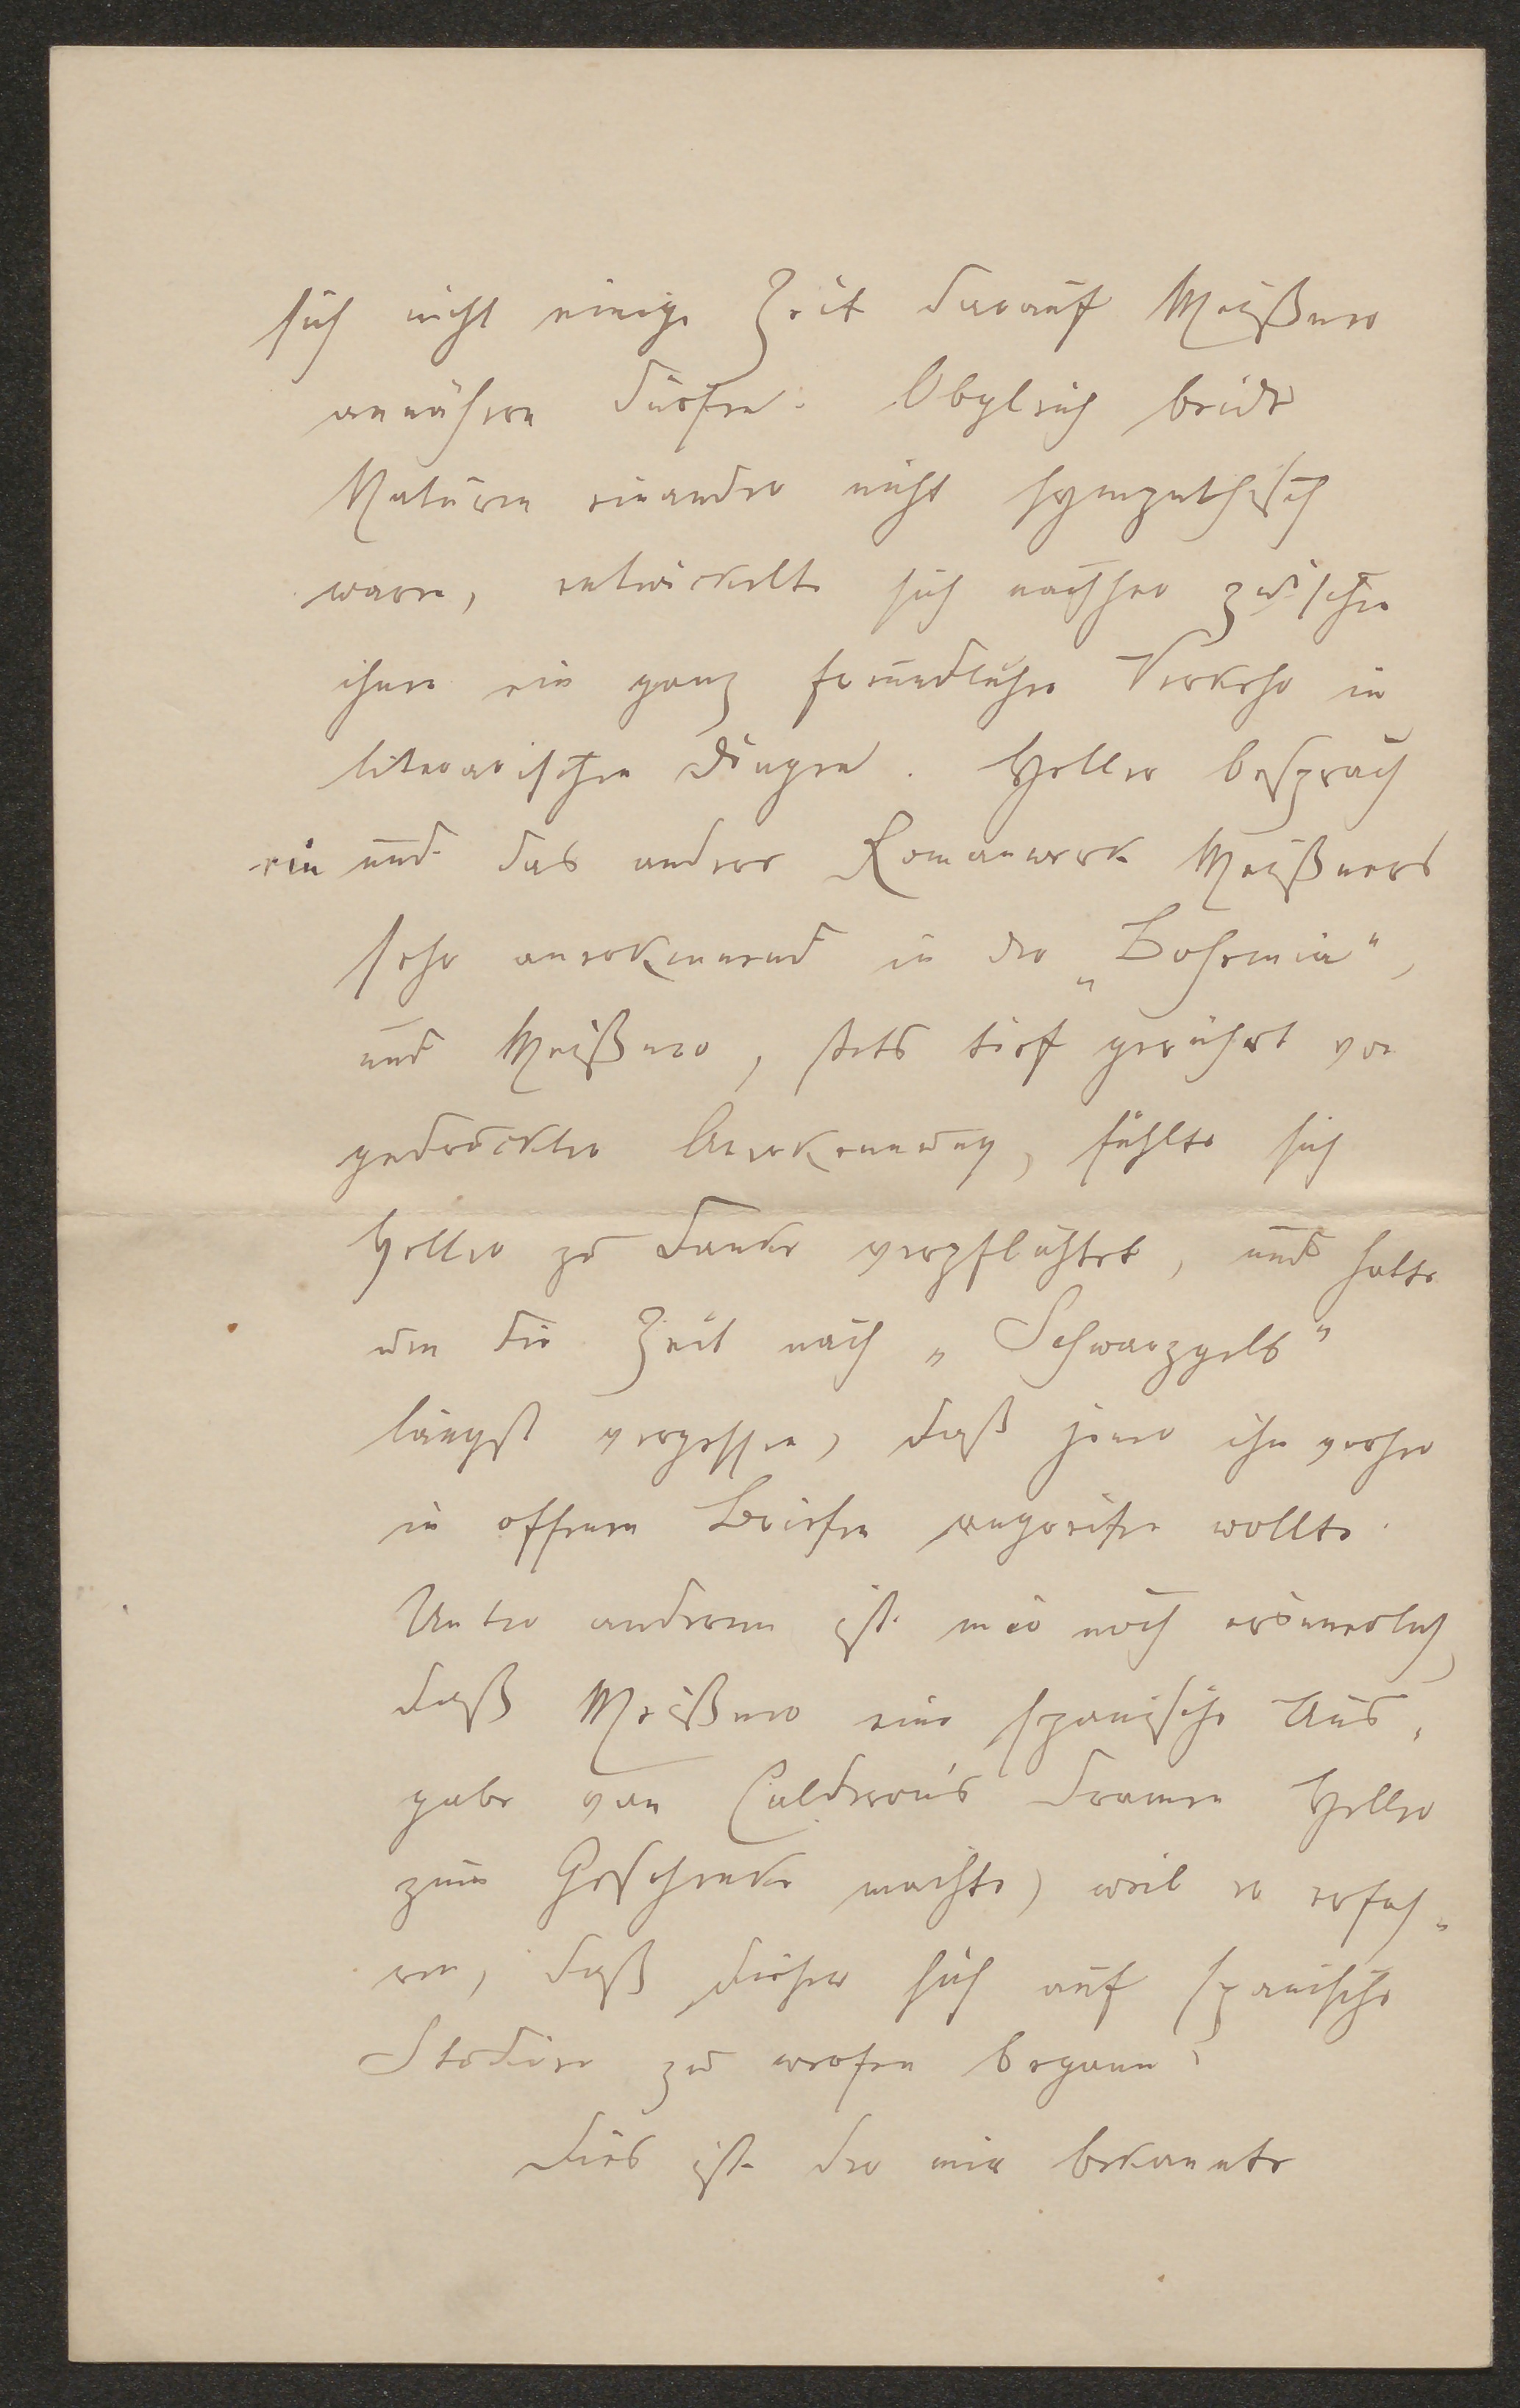 sich nicht einige Zeit darauf Meißner
annähern dürfen. Obgleich beide
Naturen einander nicht sympathisch
waren, entwickelte sich nachher zwischen
ihnen ein ganz freundlicher Verkehr in
literarischen Dingen. Heller besprach
ein und das andere Romanwerk Meißners
sehr anerkennend in der „Bohemia",
und Meißner, stets tief gerührt von
gedruckter Anerkennung, fühlte sich
Heller zu Danke verpflichtet, und hatte
um die Zeit nach „Schwarzgelb"
längst vergessen, daß jener ihn vorher
in offenen Briefen angreifen wollte.
Unter anderem ist mir noch erinnerlich,
daß Meißner eine spanische Aus-
gabe von Calderon's Dramen Heller
zum Geschenke machte, weil er erfah-
ren, daß dieser sich auf spanische
Studien zu werfen begann.
Dies ist der mir bekannte